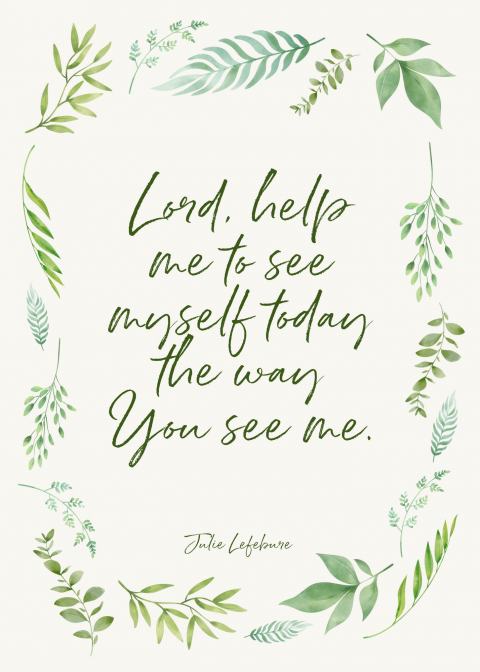 Lord, help
me to see
myself today
the way
You see me.
Julie Lefebure